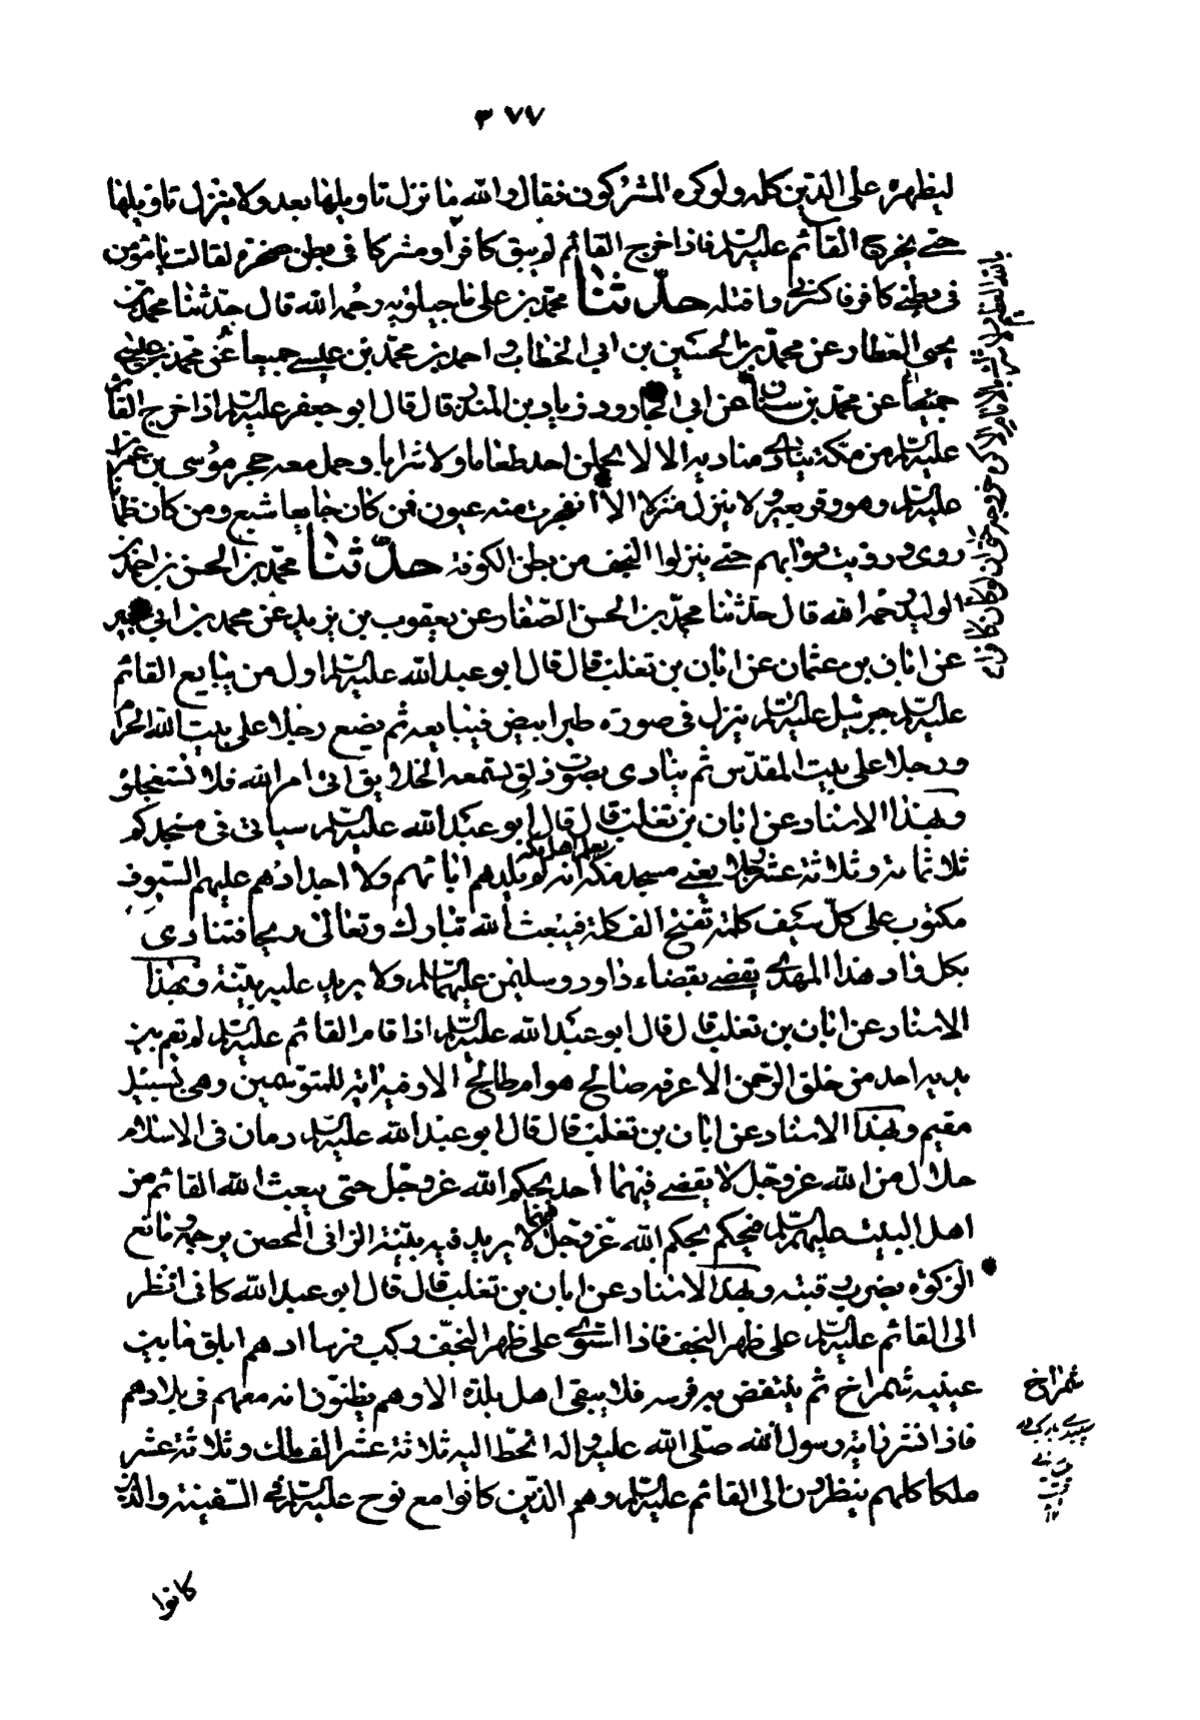 ٣٧٧
ليظهره على الدين كله ولو كره المشركون فقال والله ما نزل تاويلها بعد ولا ينزل تاويلها
حتى يخرج القائم عليه السلم فاذا خرج القائم لم يبق كافرا ومشركا فى بطن صخرة لقالت يا مؤمن
فى بطنى كافر فاكسرنى واقتله حدثنا محمد بن على ماجيلويه رحمه الله قال حدثنا محمد بن
يحيى العطار عن محمد بن الحسين بن ابى الخطاب و احمد بن محمد بن عيسى جميعا عن محمد بن
جميعا عن محمد بن سنان عن ابى الجارود زياد بن المنذر قال قال ابو جعفر عليه السلم اذا خرج القائم
عليه السلم من مكة ينادى مناديه الا لا يحملن احد طعاما ولا شرابا وحمل معه حجر موسى بن عمران
عليه السلم وهو وقر بعير ولا ينزل منزلا الا انفجرت منه عيون فمن كان جايعا شبع ومن كان ظمانا
روى ورويت دوابهم حتى ينزلوا النجف من بطن الكوفة حدثنا محمد بن الحسن بن احمد بن
الوليد رحمه الله قال حدثنا محمد بن الحسن الصفار عن يعقوب بن يزيد عن محمد بن ابى عمير
عن ابان بن عثمان عن ابان بن تغلب قال قال ابو عبد الله عليه السلم اول من يبايع القائم
عليه السلم جبرئيل عليه السلم ينزل فى صورة طير ابيض فيبايعه ثم يضع رجلا على بيت الله الحرام
ورجلا على بيت المقدس ثم ينادى بصوت ذلق يسمعه الخلايق اتى امر الله فلا تستعجلوه
وبهذا الاسناد عن ابان بن تغلب قال قال ابو عبد الله عليه السلم سياتى فى مسجدكم
ثلاثمائة وثلاثة عشر رجلا يعنى مسجد مكة يعلم اهل مكة انه لم يلدهم اباؤهم ولا اجدادهم عليهم السيوف
مكتوب على كل سيف كلمة تفتح الف كلمة فيبعث الله تبارك وتعالى ريحا فتنادى
بكل واد هذا المهدى يقضى بقضاء داود وسليمن عليهما السلم ولا يريد عليه بينة وبهذا
الاسناد عن ابان بن تغلب قال قال ابو عبد الله عليه السلم اذا قام القائم عليه السلم لم يقم بين
يديه احد من خلق الرحمن الا عرفه صالح هو ام طالح الا وفيه اية للمتوسمين وهى بسبيل
مقيم وبهذا الاسناد عن ابان بن تغلب قال قال ابو عبد الله عليه السلم دمان فى الاسلام
حلال من الله عز وجل لا يقضى فيهما احد بحكم الله عز وجل حتى يبعث الله القائم من
اهل البيت عليهم السلم فيحكم بحكم الله عز وجل فيهما لا يريد فيه بينة الزانى المحصن يرجمه ومانع
الزكوة يضرب رقبته وبهذا الاسناد عن ابان بن تغلب قال قال ابو عبد الله كانى انظر
الى القائم عليه السلم على ظهر النجف فاذا استوى على ظهر النجف ركب فرسا ادهم ابلق ما بين
عينيه شمراخ ثم ينتفض به فرسه فلا يبقى اهل بلدة الا وهم يظنون انه معهم فى بلادهم
فاذا نشر راية رسول الله صلى الله عليه واله انحط اليه ثلاثة عشر الف ملك وثلاثة عشر
ملكا كلهم ينظرون الى القائم عليه السلم وهم الذين كانوا مع نوح عليه السلم فى السفينة والذين
كانوا
شمراخ